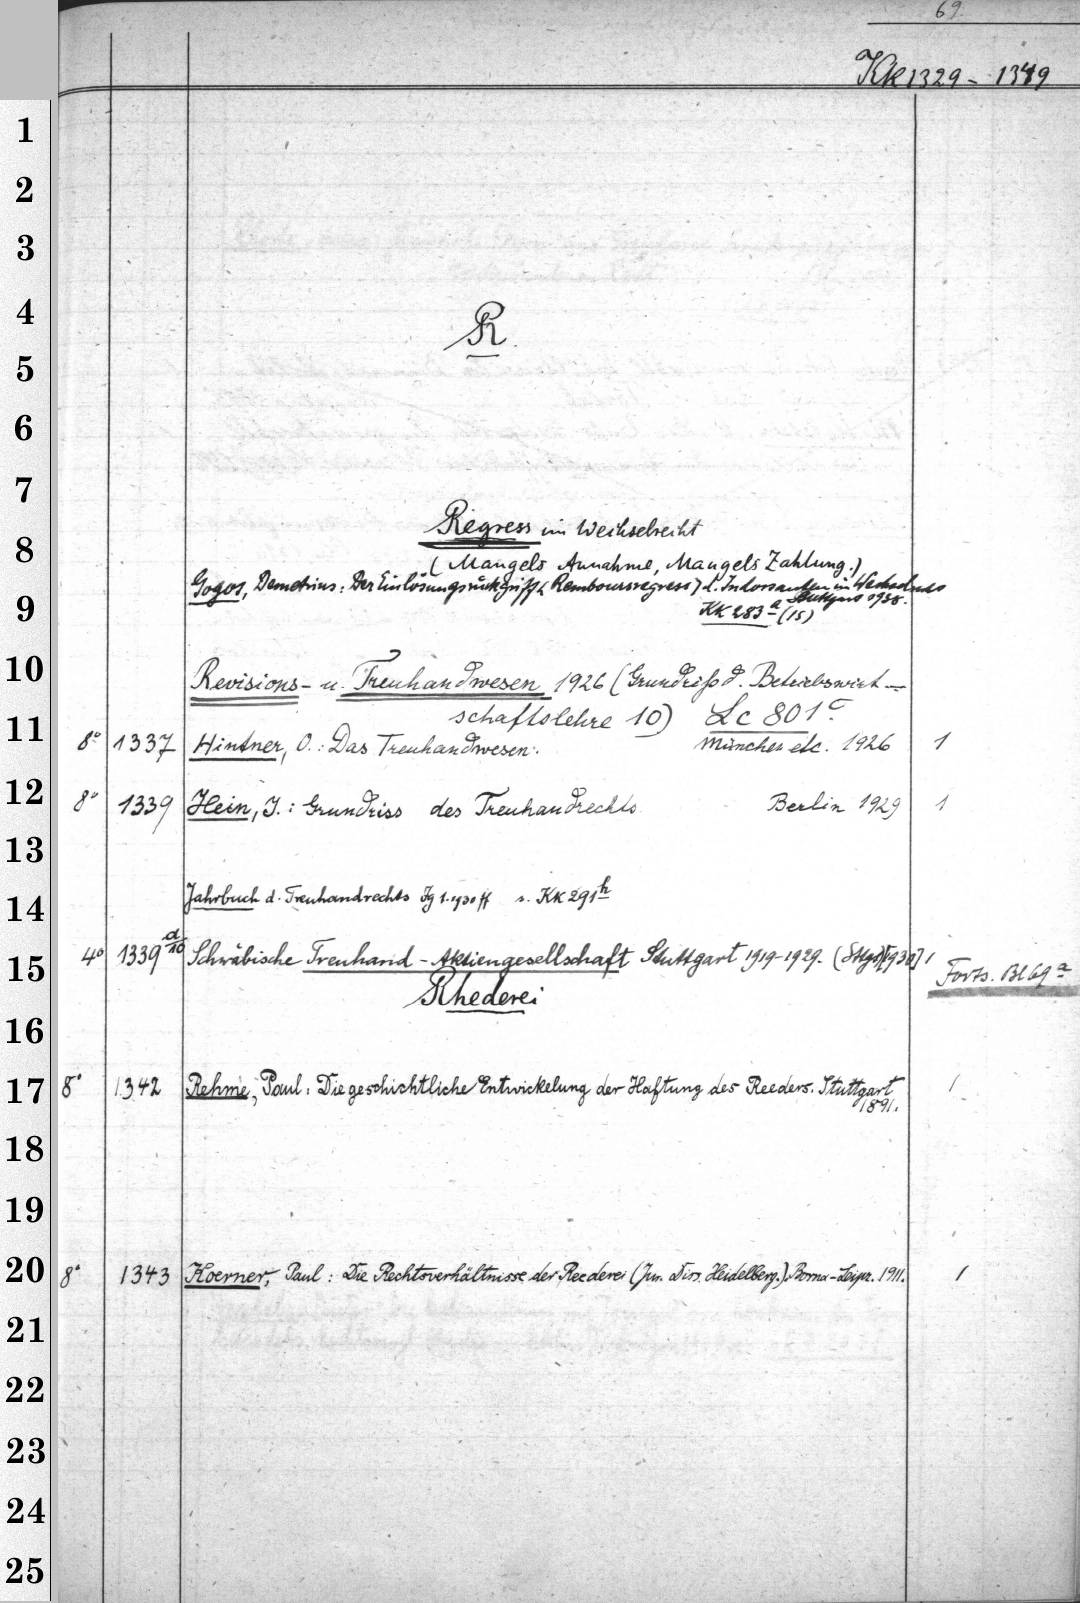 69.
Kk 1329 - 1349
1
2
3
4
R.
5
6
7
Regress im Wechselrecht
8
(Mangels Annahme, Mangels Zahlung.)
Gogos, Demetrius: Der Einlösungsrückgriff (Remboursregress) d. Indossanten im Wechselrecht
Stuttgart 1938.
9
KK 283a (15)
10
Revisions- u. Treuhandwesen 1926 (Grundriß d. Betriebswirt-
schaftslehre 10) Lc 801c
11
8° 1337 Hintner, O.: Das Treuhandwesen. München etc. 1926 1
12
8° 1339 Hein, J.: Grundriss des Treuhandrechts Berlin 1929 1
13
14
Jahrbuch d. Treuhandrechts Jg 1.1930 ff s. Kk 291h
15
4° 1339 d/10 Schwäbische Treuhand-Aktiengesellschaft Stuttgart 1919-1929. (Stgt) [1930] 1
Forts. Bl 69a
Rhederei
16
17
8° 1342 Rehme, Paul: Die geschichtliche Entwickelung der Haftung des Reeders. Stuttgart 1
1891.
18
19
20
8° 1343 Koerner, Paul: Die Rechtsverhältnisse der Reederei (Jur. Diss. Heidelberg.) Borna-Leipz. 1911. 1
21
22
23
24
25